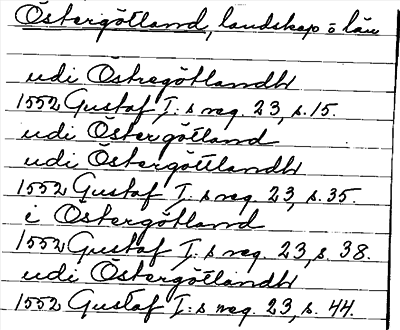 Östergötland, landskap o län
udi Östregötlandh
1552 Gustaf I:s reg. 23, s. 15.
udi Östergötland
udi Östergötlandh
1552 Gustaf I:s reg. 23, s. 35.
i Östergötland
1552 Gustaf I:s reg. 23, s. 38.
udi Östergötlandh
1552 Gustaf I:s reg. 23, s. 44.